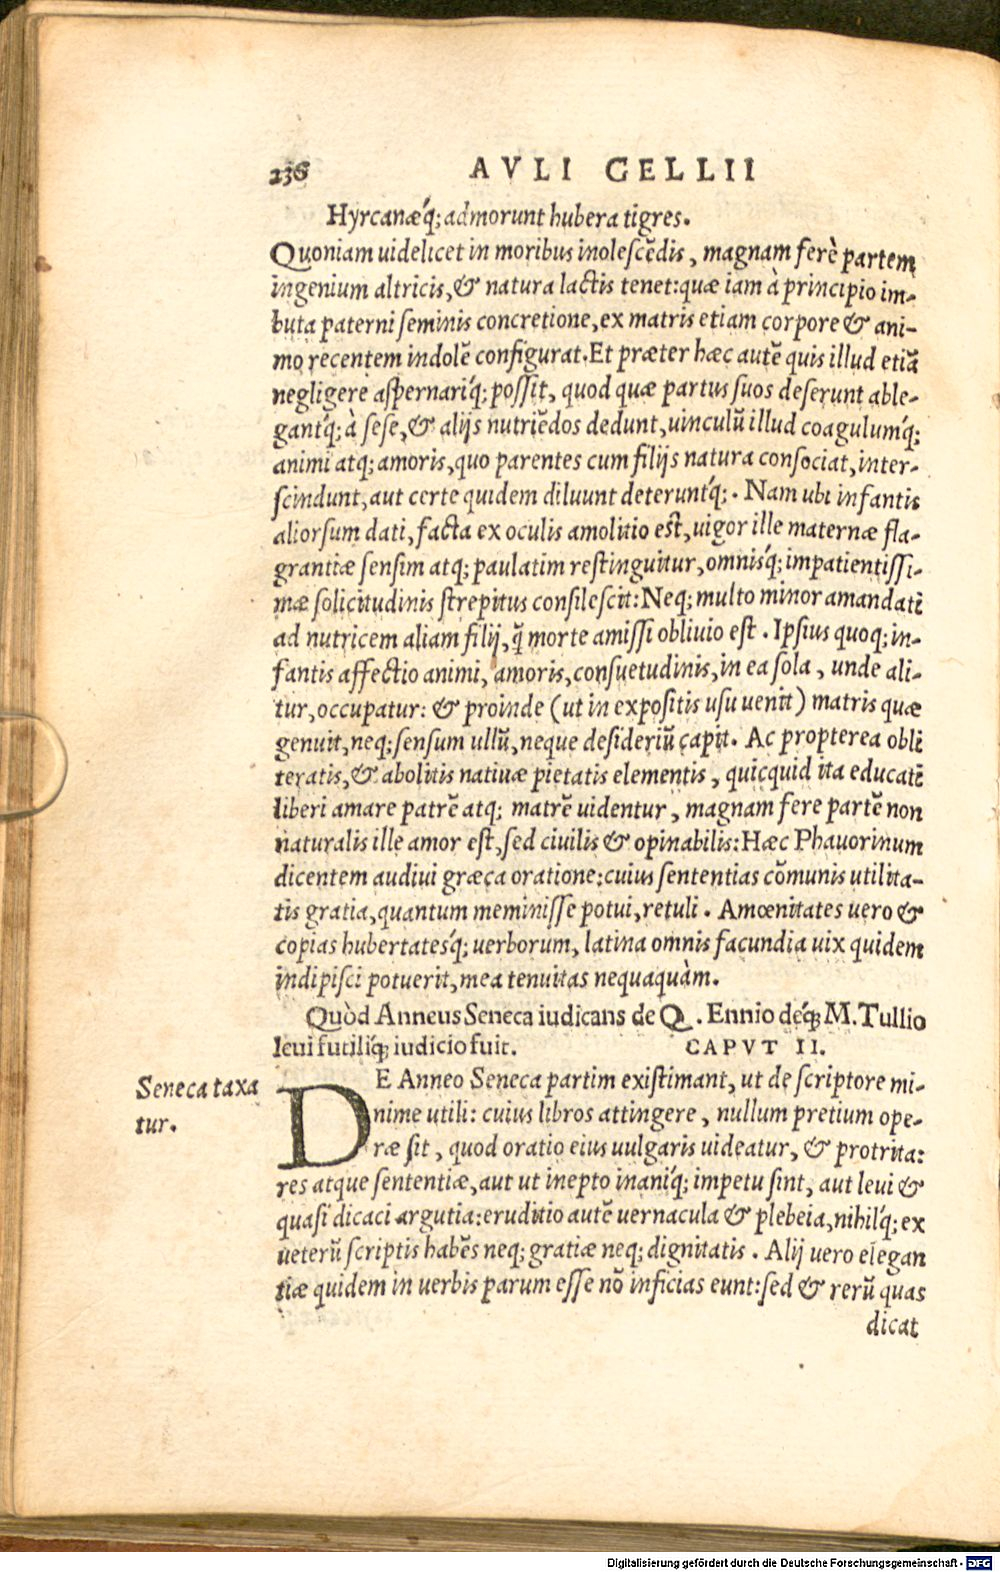 236 AVLI GELLII
Hyrcanæq́; admorunt hubera tigres.
Quoniam uidelicet in moribus inolescẽdis, magnam ferè partem
ingenium altricis, & natura lactis tenet: quæ iam à principio im-
buta paterni seminis concretione, ex matris etiam corpore & ani-
mo recentem indolẽ configurat. Et præter hæc autẽ quis illud etiã
negligere aspernariq́; possit, quod quæ partus suos deserunt able-
gantq́; à sese, & alijs nutriẽdos dedunt, uinculũ illud coagulumq́;
animi atq; amoris, quo parentes cum filijs natura consociat, inter-
scindunt, aut certe quidem diluunt deteruntq́;. Nam ubi infantis
aliorsum dati, facta ex oculis amolitio est, uigor ille maternæ fla-
grantiæ sensim atq; paulatim restinguitur, omnisq́; impatientissi-
mæ solicitudinis strepitus consilescit: Neq; multo minor amandati
ad nutricem aliam filij, q̃ morte amissi obliuio est. Ipsius quoq; in-
fantis affectio animi, amoris, consuetudinis, in ea sola, unde ali-
tur, occupatur: & proinde (ut in expositis usu uenit) matris quæ
genuit, neq; sensum ullũ, neque desideriũ capit. Ac propterea obli
teratis, & abolitis natiuæ pietatis elementis, quicquid ita educati
liberi amare patrẽ atq; matrẽ uidentur, magnam fere partẽ non
naturalis ille amor est, sed ciuilis & opinabilis: Hæc Phauorinum
dicentem audiui græca oratione: cuius sententias cõmunis utilita-
tis gratia, quantum meminisse potui, retuli. Amœnitates uero &
copias hubertatesq́; uerborum, latina omnis facundia uix quidem
indipisci potuerit, mea tenuitas nequaquàm.
Quòd Anneus Seneca iudicans de Q. Ennio deq́; M. Tullio
leui futiliq́; iudicio fuit. CAPVT II.
Seneca taxa
tur.
DE Anneo Seneca partim existimant, ut de scriptore mi-
nime utili: cuius libros attingere, nullum pretium ope-
ræ sit, quod oratio eius uulgaris uideatur, & protrita:
res atque sententiæ, aut ut inepto inaniq́; impetu sint, aut leui &
quasi dicaci argutia: eruditio autẽ uernacula & plebeia, nihilq́; ex
ueterũ scriptis habẽs neq; gratiæ neq; dignitatis. Alij uero elegan
tiæ quidem in uerbis parum esse nõ inficias eunt: sed & rerũ quas
dicat
Digitalisierung gefördert durch die Deutsche Forschungsgemeinschaft - DFG